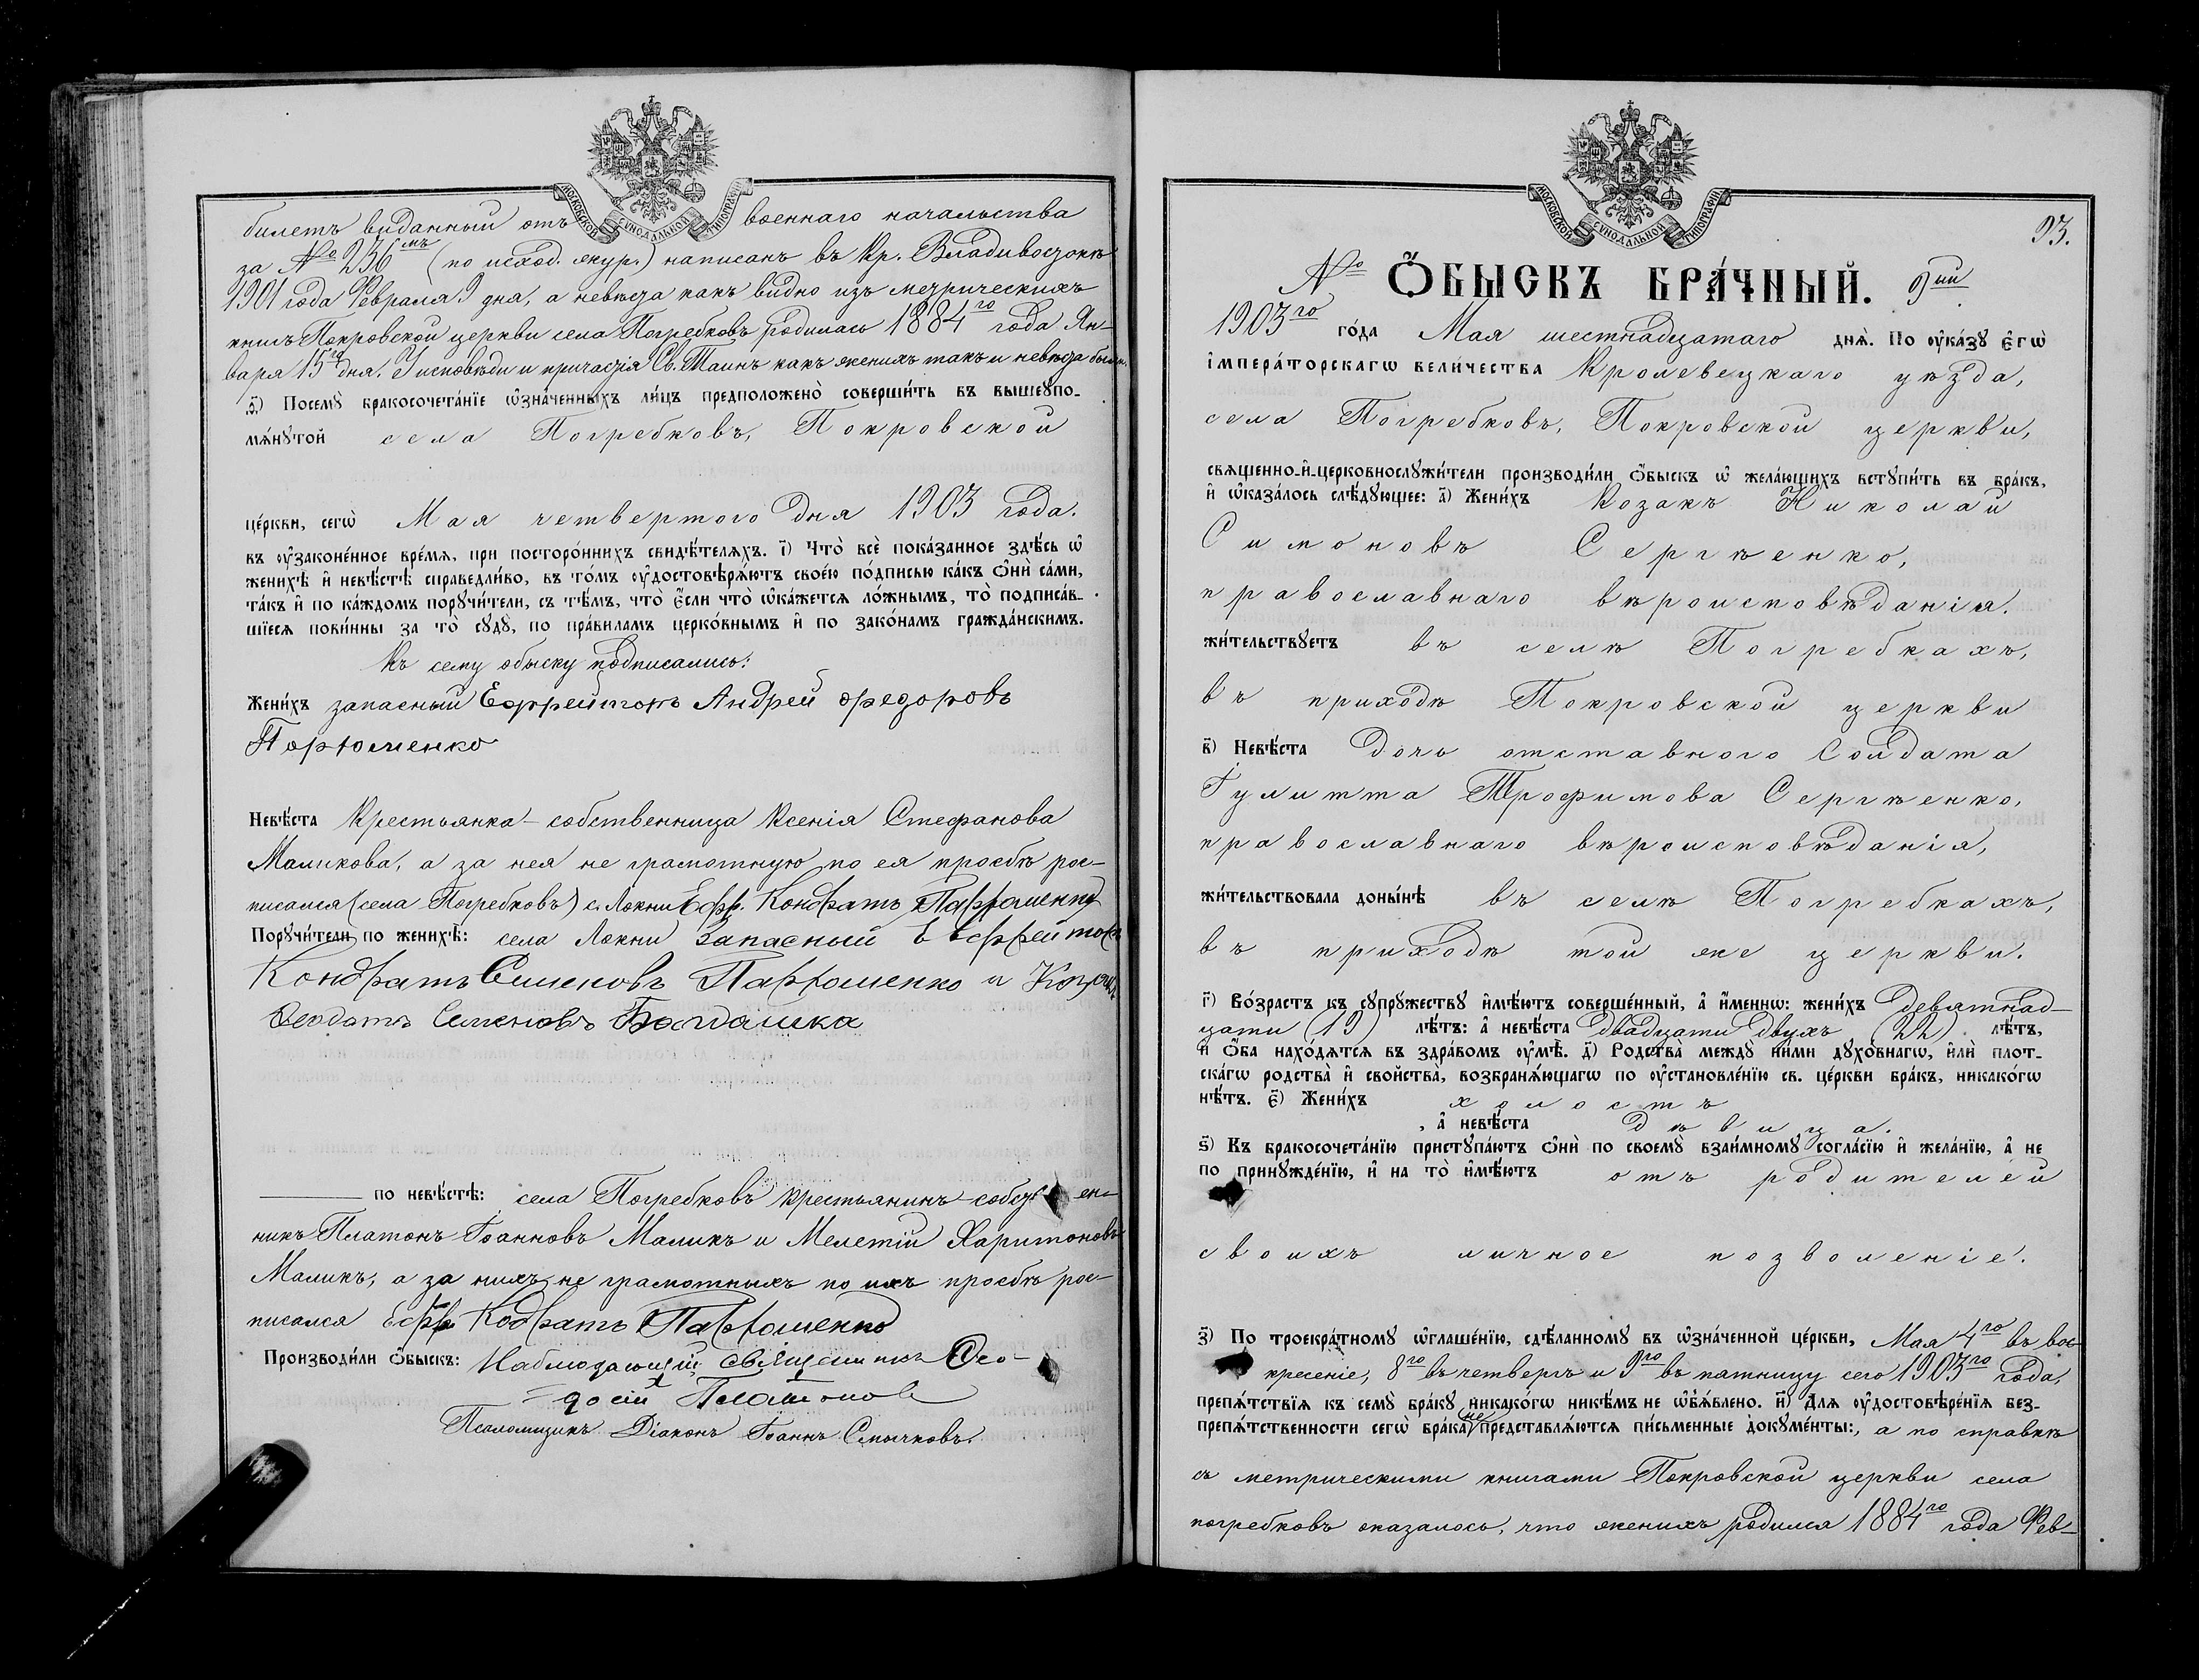 МОСКОВСКОЙ СѴНОДАЛЬНОЙ ТИПОГРАФІИ
билетъ виданный отъ военнаго начальства
за № 236мъ (по исход. жур.) написанъ въ Кр. Владивостокѣ
1901 года Февраля 9 дня, а невѣста какъ видно изъ метрическихъ
книгъ Покровской церкви села Погребковъ родилась 1884го года Ян-
варя 15го дня. У исповѣди и причастія Св. Таинъ какъ женихъ такъ и невѣста были.
ѳ҃) Посемꙋ̀ бракосочета́нїе ѡ҆зна́ченныхъ ли́цъ предположено̀ соверши́ть въ вышеꙋпо-
мѧ́нꙋтой села Погребковъ, Покровской
це́ркви, сегѡ̀ Мая четвертого дня 1903 года.
въ ᲂу҆законе́нное вре́мѧ, при посторо́ннихъ свидѣ́телѧхъ. і҃) Что̀ всѐ пока́занное здѣ́сь ѡ҆
женихѣ̀ и҆ невѣ́стѣ справедли́во, въ то́мъ ᲂу҆достовѣрѧ́ютъ свое́ю по́дписью ка́къ ѻ҆нѝ са́ми,
та́къ и҆ по ка́ждомъ порꙋчи́тели, съ тѣ́мъ, что̀ є҆́сли что̀ ѡ҆ка́жетсѧ ло́жнымъ, то̀ подписа́в-
шїесѧ пови́нны за то̀ сꙋдꙋ̀, по пра́виламъ церко́внымъ и҆ по зако́намъ гражда́нскимъ.
Къ сему обыску подписались:
Жени́хъ запасный Ефрейторъ Андрей Федоровъ
Порхоменко
Невѣ́ста Крестьянка-собственница Ксенія Стефанова
Маликова, а за нея не грамотную по ея просбѣ рос-
писался (села Погребковъ) с. Локни Ефр. Кондратъ Пархоменко
Порꙋчи́тели по женихѣ̀: села Локни Запасный Ефрейторъ
Кондратъ Семеновъ Пархоменко и Козакъ
Феодотъ Семеновъ Богдашка
по невѣ́стѣ: села Погребковъ крестьянинъ-собствен-
никъ Платонъ Іоанновъ Маликъ и Мелетій Харитоновъ
Маликъ, а за нихъ не грамотныхъ по ихъ просбѣ рос-
писался Ефр Кодратъ Пархоменко
Производи́ли ѻ҆́быскъ: Наблюдающій Священникъ Ѳео-
досій Платонов
Псаломщикъ Діаконъ Іоаннъ Смычковъ.
МОСКОВСКОЙ СѴНОДАЛЬНОЙ ТИПОГРАФІИ
93.
№ Ѻ҆́БЫСКЪ БРА́ЧНЫЙ. 9ый
1903го го́да Мая шестнадцатаго днѧ̀. По ᲂу҆ка́зꙋ є҆гѡ̀
і҆мпера́торскагѡ вели́чества Кролевецкаго уѣзда,
села Погребковъ, Покровской церкви,
свѧще́нно-и҆-церковнослꙋжи́тели производи́ли ѻ҆́быскъ ѡ҆ жела́ющихъ встꙋпи́ть въ бра́къ,
и҆ ѡ҆каза́лось слѣ́дꙋющее: а҃) Жени́хъ Козакъ Николай
Симоновъ Сергѣенко,
православнаго вѣроисповѣданія.
жи́тельствꙋетъ въ селѣ Погребкахъ,
въ приходѣ Покровской церкви
в҃) Невѣ́ста Дочь отставного Солдата
Іулитта Трофимова Сергѣенко,
православнаго вѣроисповѣданія,
жи́тельствовала доны́нѣ въ селѣ Погребкахъ,
въ приходѣ той же церкви.
г҃) Во́зрастъ къ сꙋпрꙋ́жествꙋ и҆мѣ́ютъ соверше́нный, а҆ и҆́меннѡ: жени́хъ девятнад-
цати (19) лѣ́тъ: а҆ невѣ́ста двадцати двухъ (22) лѣ́тъ,
и҆ ѻ҆́ба нахо́дѧтсѧ въ здра́вомъ ᲂу҆мѣ̀. д҃) Родства̀ междꙋ̀ ни́ми дꙋхо́внагѡ, и҆лѝ плот-
ска́гѡ родства̀ и҆ свойства̀, возбранѧ́ющагѡ по ᲂу҆становле́нїю св. це́ркви бра́къ, никако́гѡ
нѣ́тъ. є҃) Жени́хъ холостъ
, а҆ невѣ́ста дѣвица.
ѕ҃) Къ бракосочета́нїю пристꙋпа́ютъ ѻ҆нѝ по своемꙋ̀ взаи́мномꙋ согла́сїю и҆ жела́нїю, а҆ не
по принꙋжде́нїю, и҆ на то̀ и҆мѣ́ютъ отъ родителей
своихъ личное позволеніе.
з҃) По троекра́тномꙋ ѡ҆глаше́нїю, сдѣ́ланномꙋ въ ѡ҆зна́ченной це́ркви, Мая 4го въ вос-
кресеніе, 8го въ четвергъ и 9го въ пятницу сего 1903го года,
препѧ́тствїѧ къ семꙋ̀ бра́кꙋ никако́гѡ никѣ́мъ не ѡ҆б̾ѧ́влено. и҃) Для ᲂу҆достовѣре́нїѧ без-
препѧ́тственности сегѡ̀ бра́ка не представлѧ́ютсѧ пи́сьменные докꙋме́нты:, а по справкѣ
съ метрическими книгами Покровской церкви села
погребковъ оказалось, что женихъ родился 1884го года Фев-